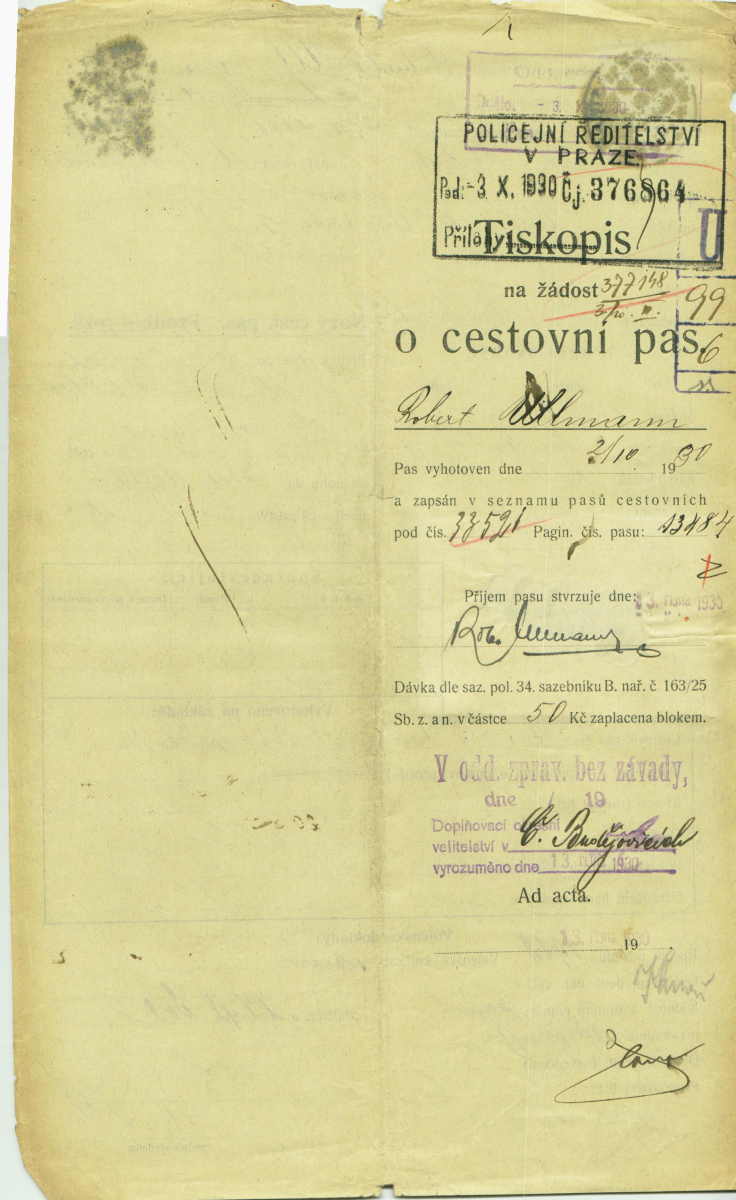 Došlo. - 3. 1930
POLICEJNÍ ŘEDITELSTVÍ
V PRAZE
Pod: -3 X. 1930 Čj. 376864
Přílohy
Tiskopis
U
na žádost 377148
99
o cestovní pas.
6
Robert Ullmann
Pas vyhotoven dne 2/10. 1930
a zapsán v seznamu pasů cestovních
pod čís. 33521 Pagin. čís. pasu: 13484
Příjem pasu stvrzuje dne: 13. října 1930
Rob. Ullmann
Dávka dle saz. pol. 34. sazebníku B. nař. č 163/25
Sb. z. a n. v částce 50 Kč zaplacena blokem.
V odd. zprav. bez závady,
dne 19
Doplňovací
velitelství v Č. Budějovicích
vyrozuměno dne 13. 1930
Ad acta.
19 .